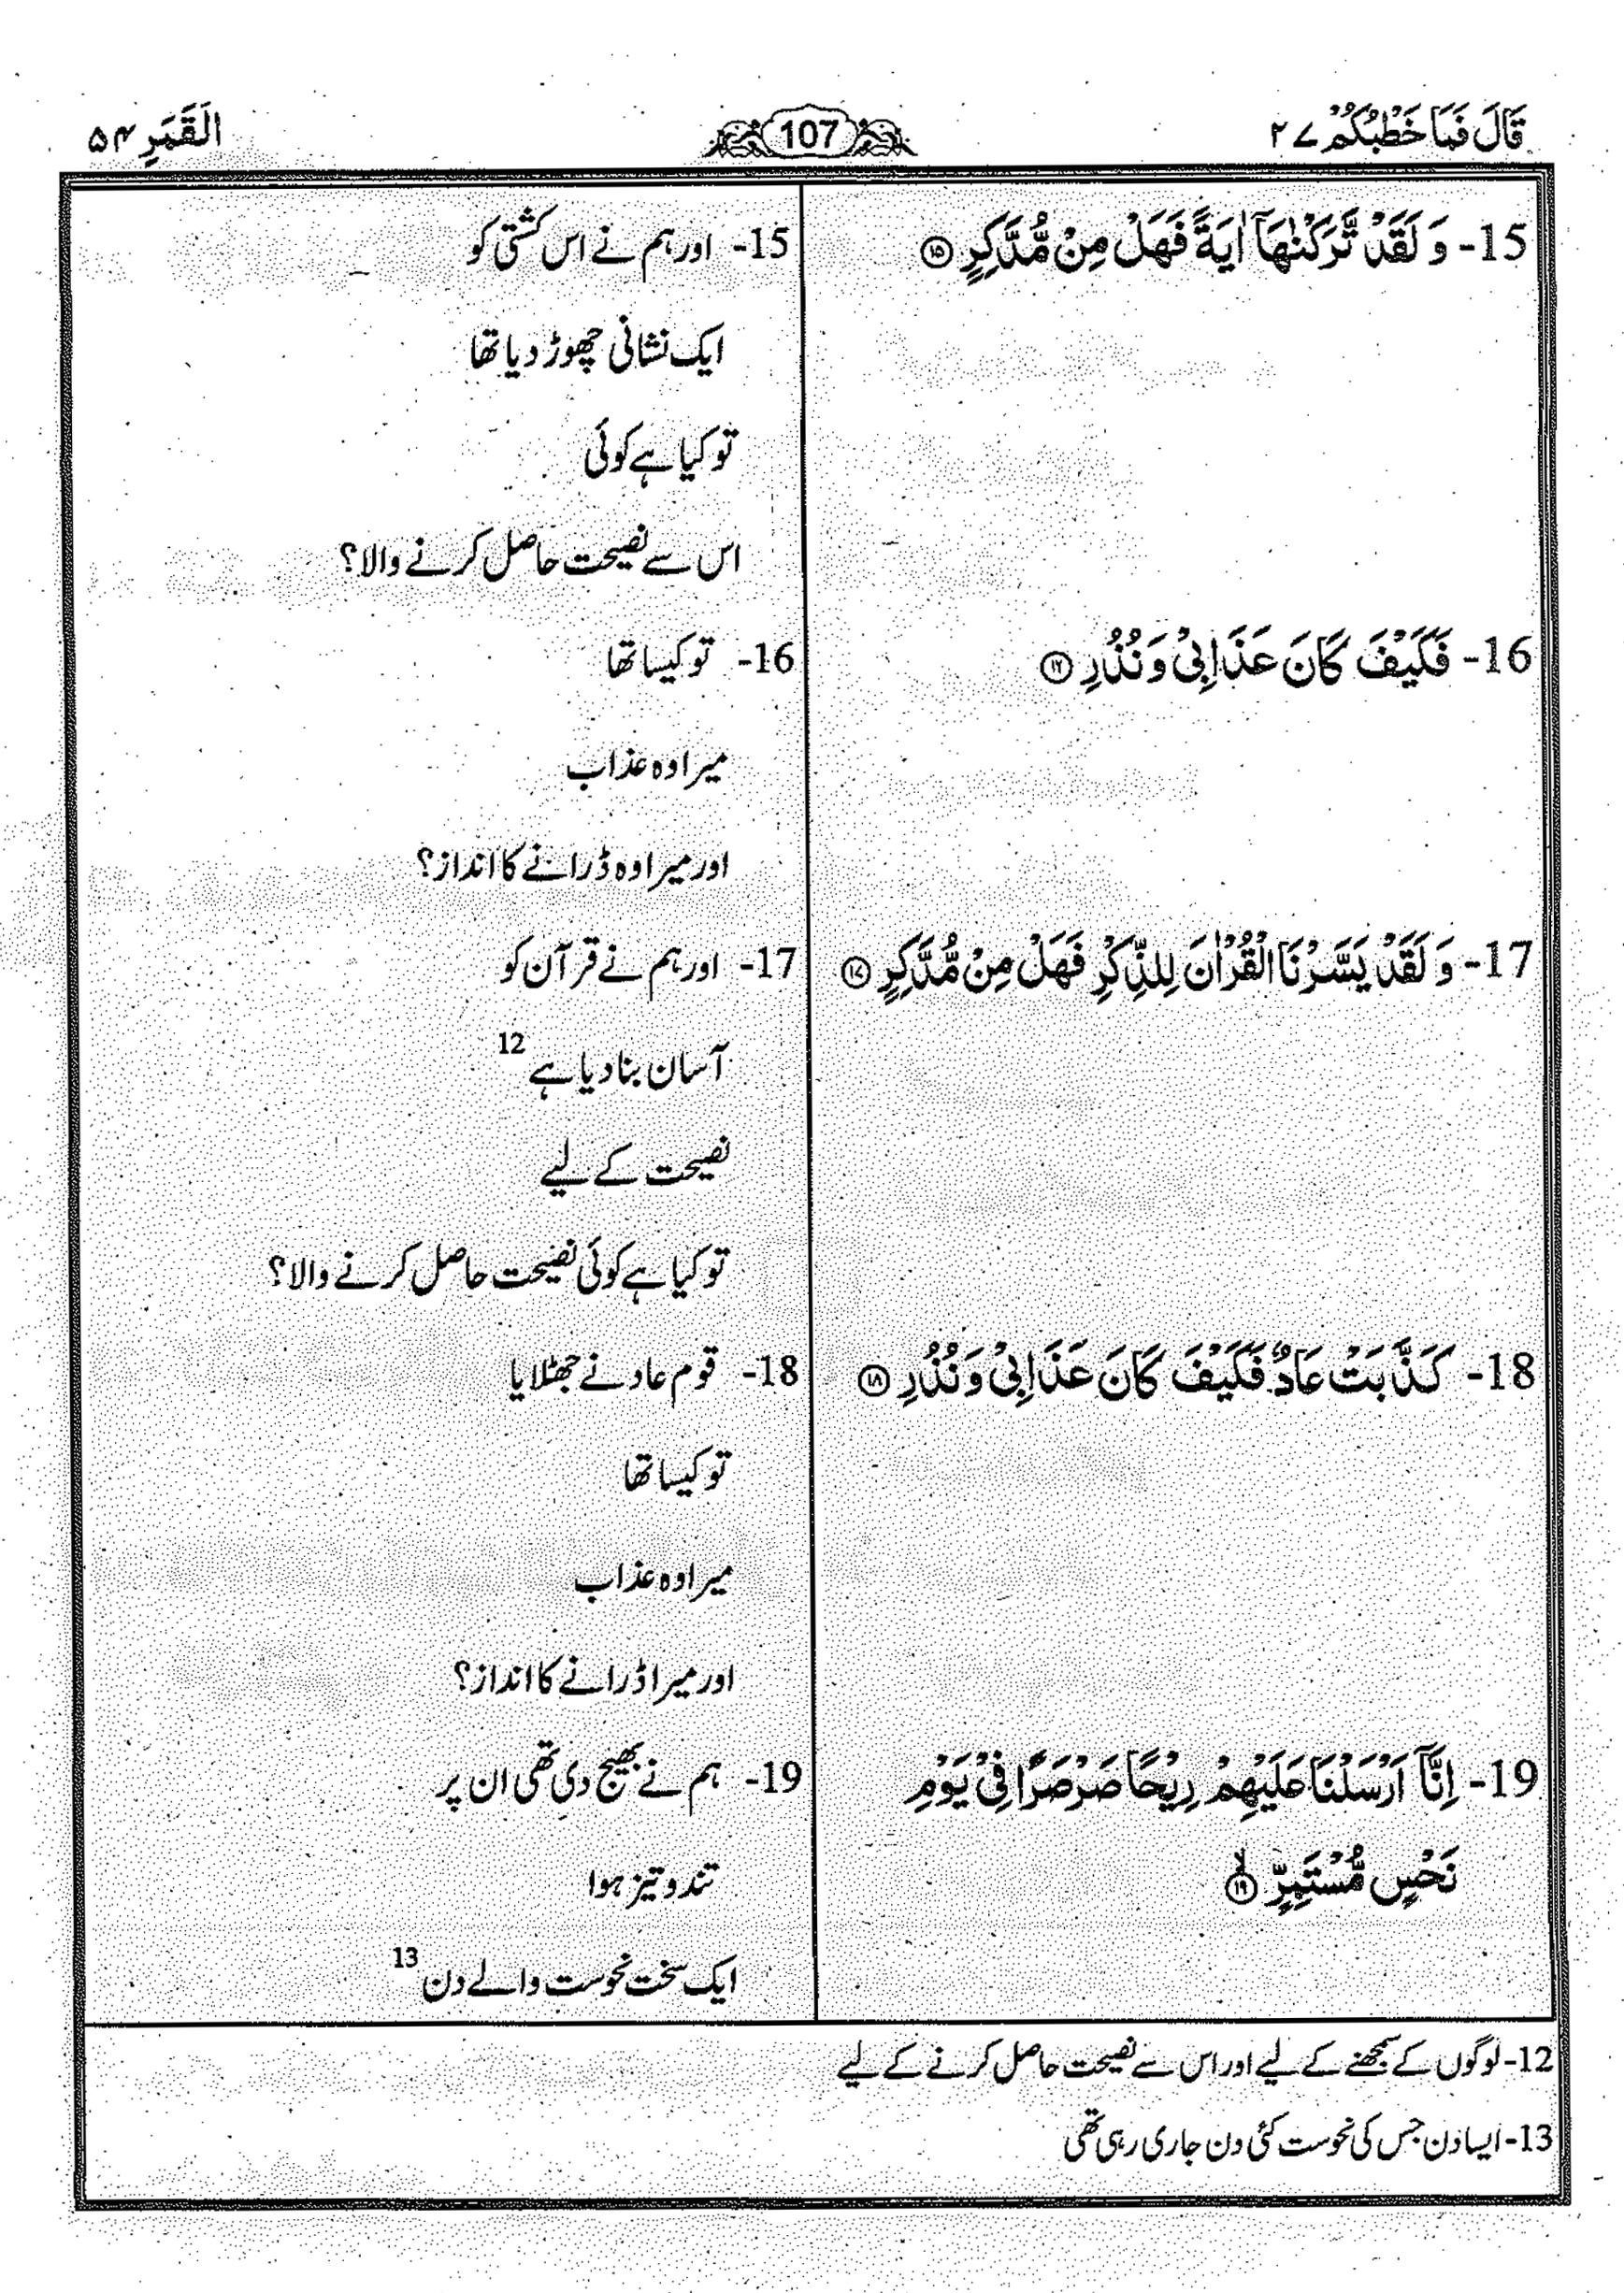 قَالَ فَمَا خَطْبُكُمْ ۲۷
107
الْقَمَرِ ۵۴
15- وَ لَقَدْ تَّرَكْنٰهَاۤ اٰيَةً فَهَلْ مِنْ مُّدَّكِرٍ ۝۱۵
15- اور ہم نے اس کشتی کو
ایک نشانی چھوڑ دیا تھا
تو کیا ہے کوئی
اس سے نصیحت حاصل کرنے والا؟
16- فَكَيْفَ كَانَ عَذَابِيْ وَ نُذُرِ ۝۱۶
16- تو کیسا تھا
میرا وہ عذاب
اور میرا وہ ڈرانے کا انداز؟
17- وَ لَقَدْ يَسَّرْنَا الْقُرْاٰنَ لِلذِّكْرِ فَهَلْ مِنْ مُّدَّكِرٍ ۝۱۷
17- اور ہم نے قرآن کو
آسان بنا دیا ہے 12
نصیحت کے لیے
تو کیا ہے کوئی نصیحت حاصل کرنے والا؟
18- كَذَّبَتْ عَادٌ فَكَيْفَ كَانَ عَذَابِيْ وَ نُذُرِ ۝۱۸
18- قوم عاد نے جھٹلایا
تو کیسا تھا
میرا وہ عذاب
اور میرا ڈرانے کا انداز؟
19- اِنَّاۤ اَرْسَلْنَا عَلَيْهِمْ رِيْحًا صَرْصَرًا فِيْ يَوْمِ
نَحْسٍ مُّسْتَمِرٍّ ۝ۙ۱۹
19- ہم نے بھیج دی تھی ان پر
تند و تیز ہوا
ایک سخت نحوست والے دن 13
12- لوگوں کے سمجھنے کے لیے اور اس سے نصیحت حاصل کرنے کے لیے
13- ایسا دن جس کی نحوست کئی دن جاری رہی تھی